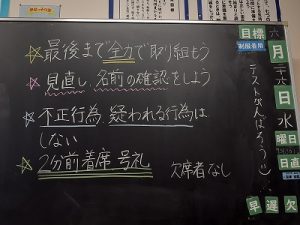 最後まで全力で取り組もう
見直し、名前の確認をしよう
不正行為、疑われる行為は
しない
2分前着席 号礼
欠席者なし
目標
制服着用
テストがんばろう
六
月
日
水
曜日
日直
早 遅 欠